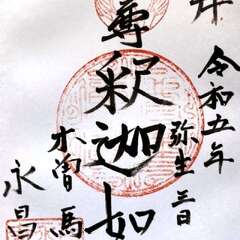 令和五年
弥生三日
尊釈迦如
木曽馬
永昌